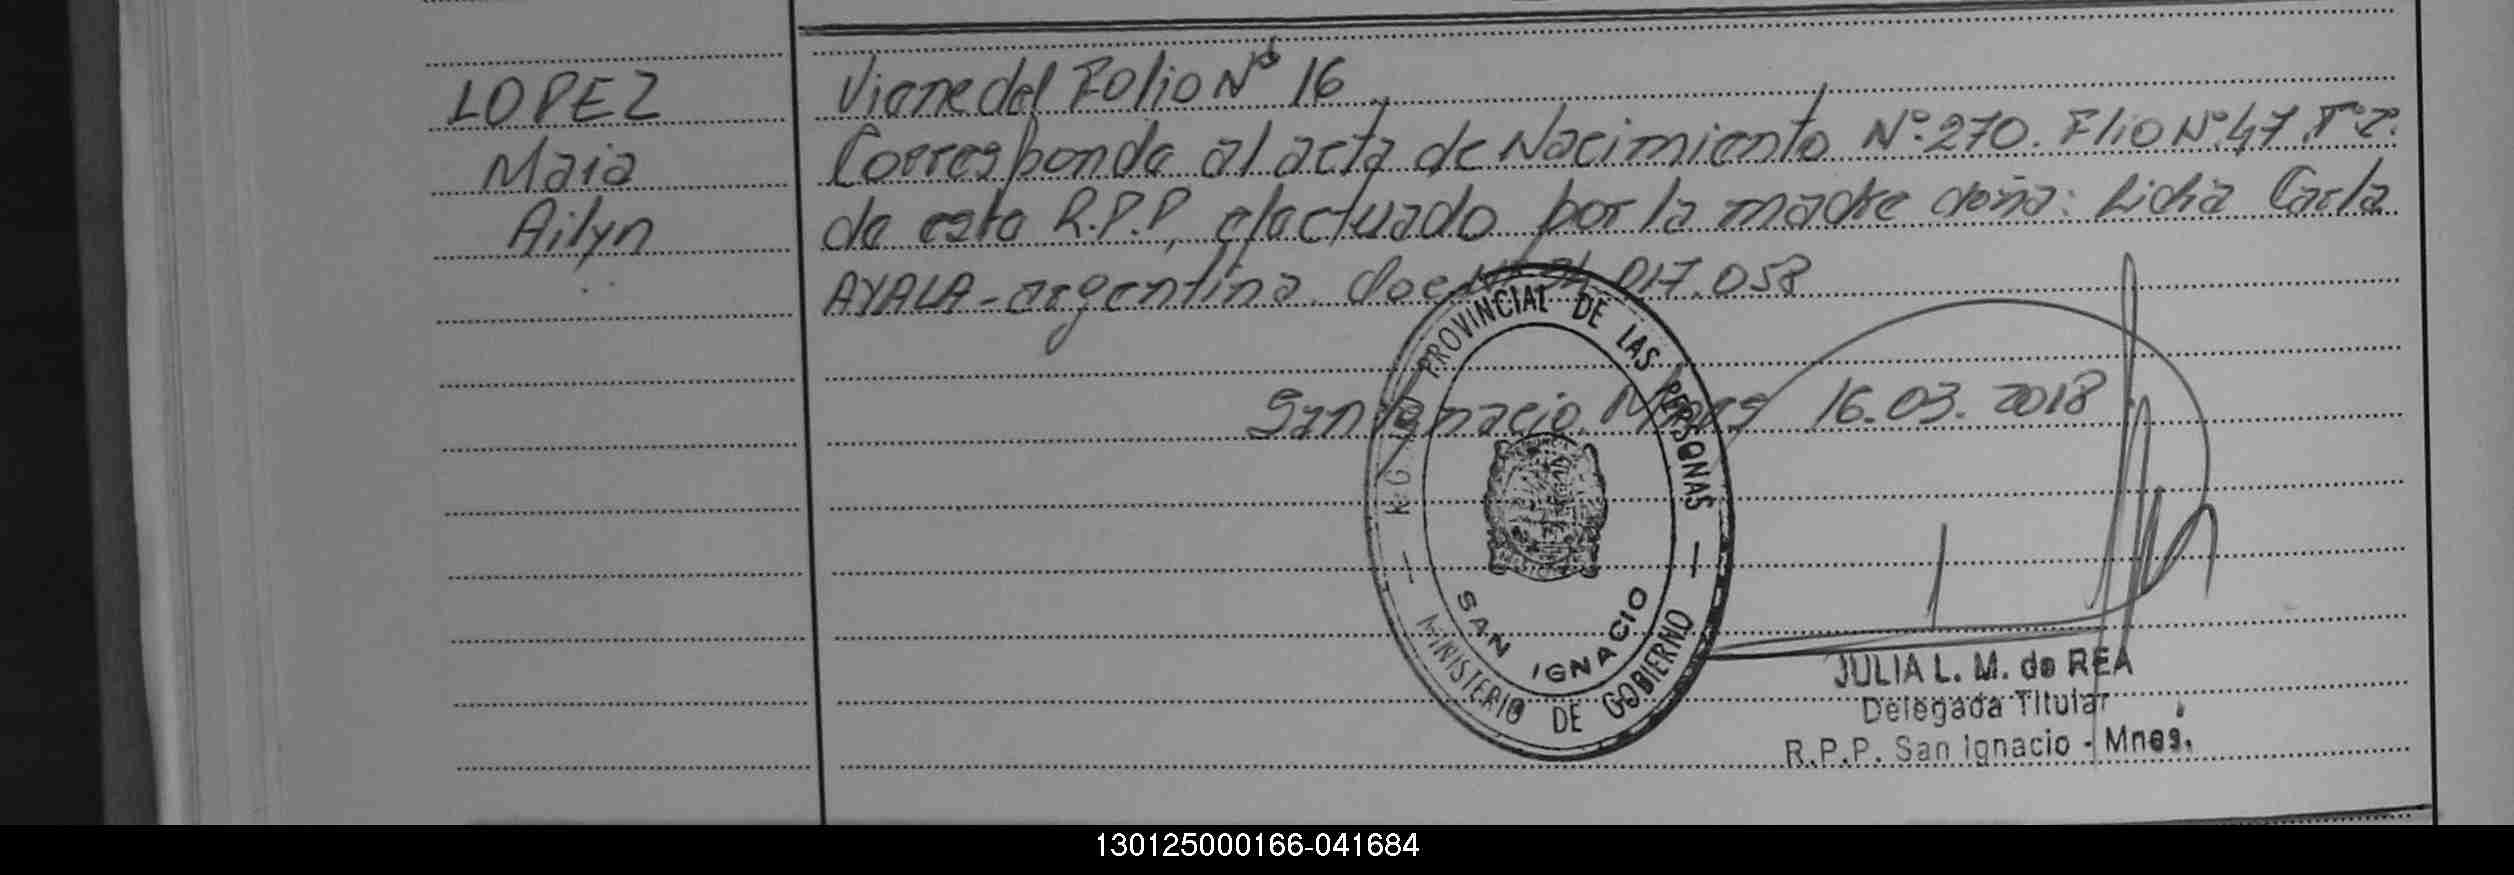 LOPEZ
Maia
Ailyn
Viene del Folio Nº 16
Corresponde al acta de Nacimiento Nº 270. Flio Nº 47. Tº 2.
de esta R.P.P, efectuado por la madre doña: Lidia Carla
AYALA - argentina. doc Nº 017.058
San Ignacio. Mnes 16.03.2018
PROVINCIAL DE LAS PERSONAS
SAN IGNACIO
MINISTERIO DE GOBIERNO
JULIA L. M. de REA
Delegada Titular
R.P.P. San Ignacio - Mnes.
130125000166-041684